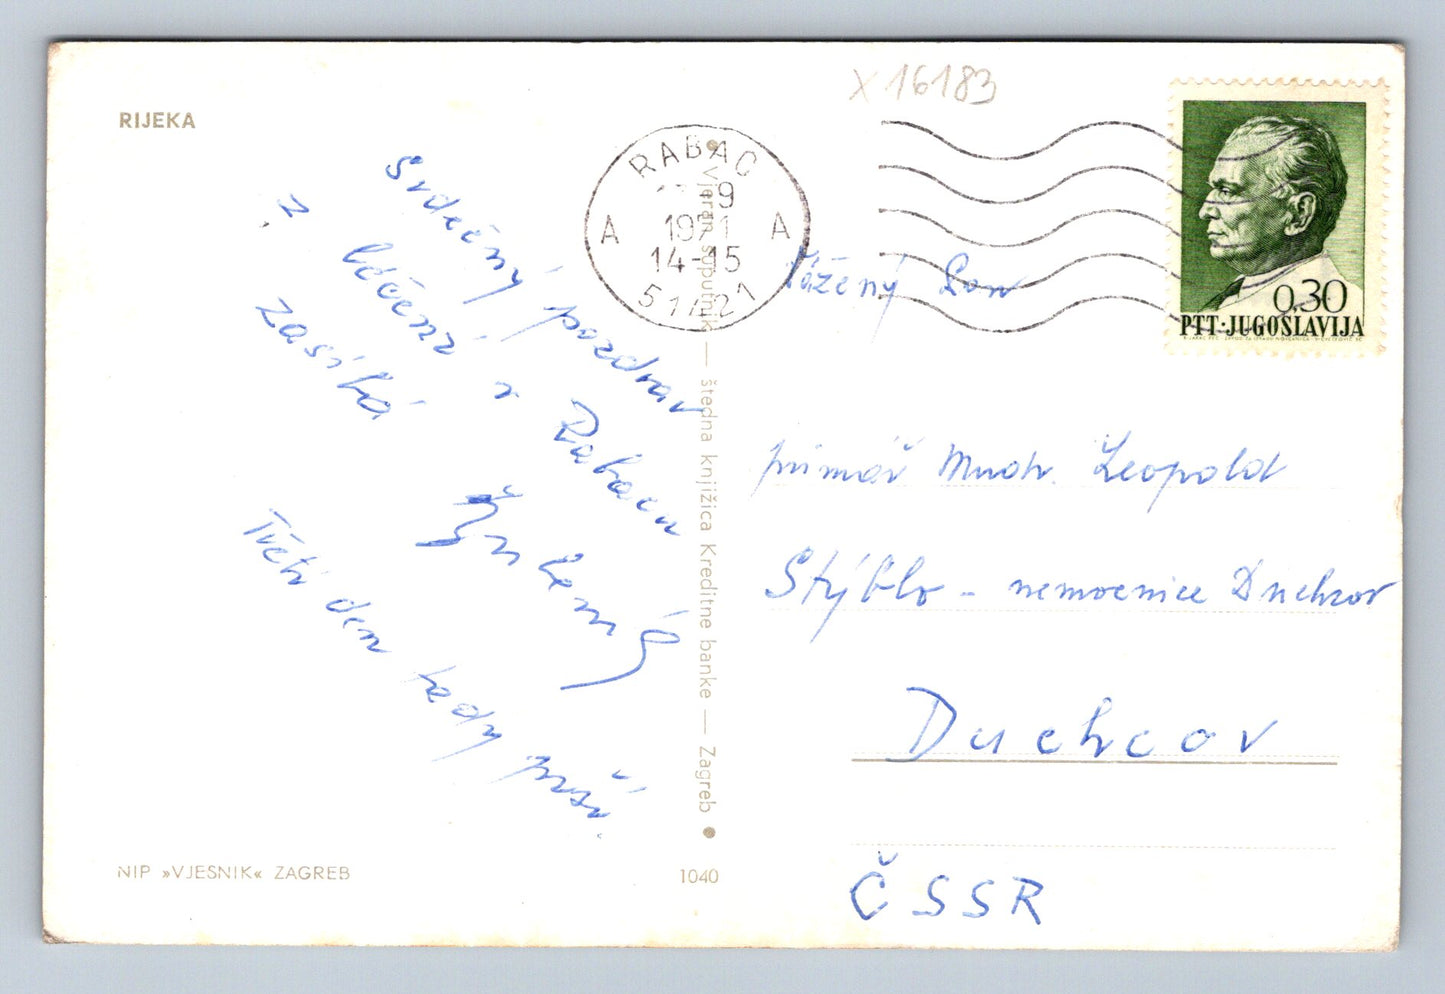 RIJEKA
X 16183
RABAC
9
1971
14-15
A A
51421
0,30
PTT·JUGOSLAVIJA
Srdečný pozdrav
z léčení v Rabacu
zasílá
Třetí den tady prší.
Vjeran suputnik — štedna knjižica Kreditne banke — Zagreb
Vážený Pan
primář Mudr. Leopold
Stýblo - nemocnice Duchcov
Duchcov
ČSSR
NIP »VJESNIK« ZAGREB
1040